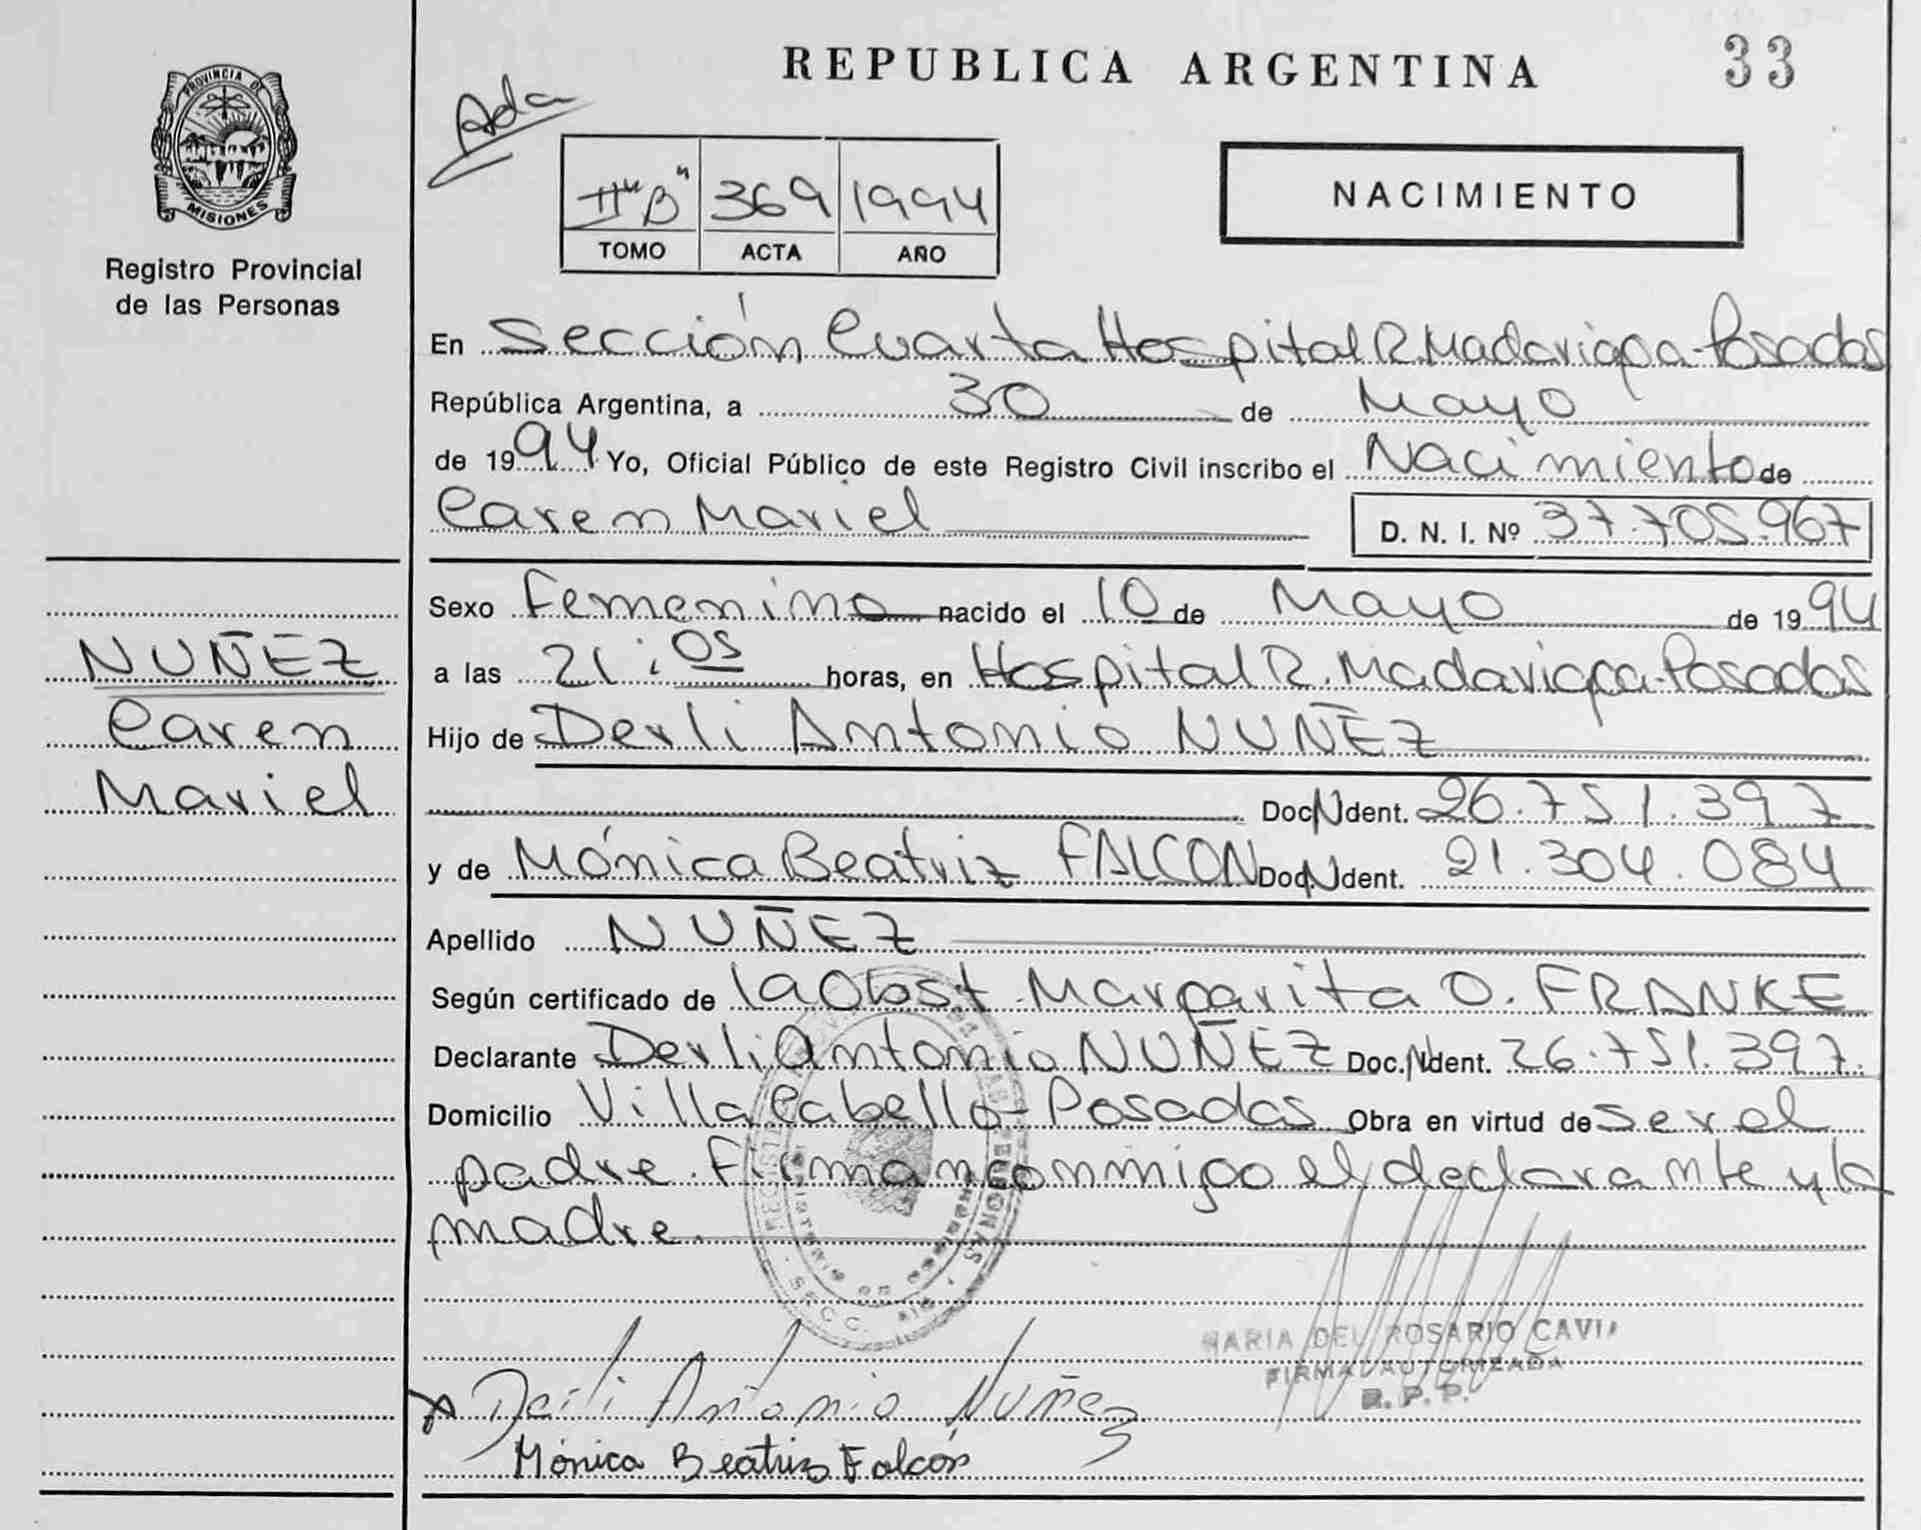 REPUBLICA ARGENTINA
33
PROVINCIA DE
MISIONES
Registro Provincial
de las Personas
Ada
II "B" 369 1994
TOMO ACTA AÑO
NACIMIENTO
En Sección Cuarta Hospital R. Madariaga-Posadas
República Argentina, a 30 de Mayo
de 1994 Yo, Oficial Público de este Registro Civil inscribo el Nacimiento de
Caren Mariel
D. N. I. Nº 37.705.967
Sexo Femenino nacido el 10 de Mayo de 1994
NUÑEZ
Caren
Mariel
a las 21:05 horas, en Hospital R. Madariaga-Posadas
Hijo de Derli Antonio NUÑEZ
Doc. N Ident. 26.751.397
y de Mónica Beatriz FALCON Doc. N Ident. 21.304.084
Apellido NUÑEZ
Según certificado de la Obst. Margarita O. FRANKE
Declarante Derli Antonio NUÑEZ Doc. N Ident. 26.751.397.
Domicilio Villa Cabello-Posadas Obra en virtud de ser el
padre. Firman conmigo el declarante y la
madre.
MARIA DEL ROSARIO
FIRMA AUTORIZADA
R. P. P.
Derli Antonio Nuñez
Mónica Beatriz Falcón